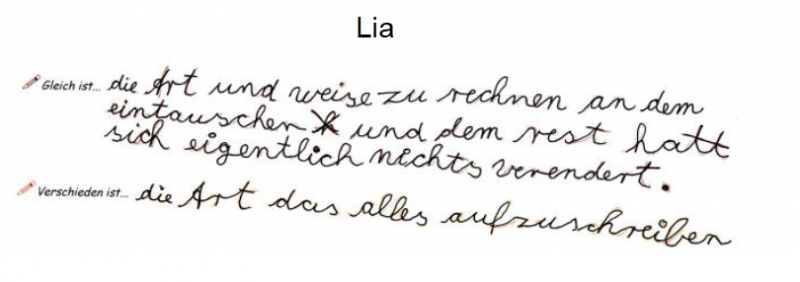 Lia
Gleich ist... die Art und weise zu rechnen an dem
eintauschen und dem rest hatt
sich eigentlich nichts verendert.
Verschieden ist... die Art das alles aufzuschreiben